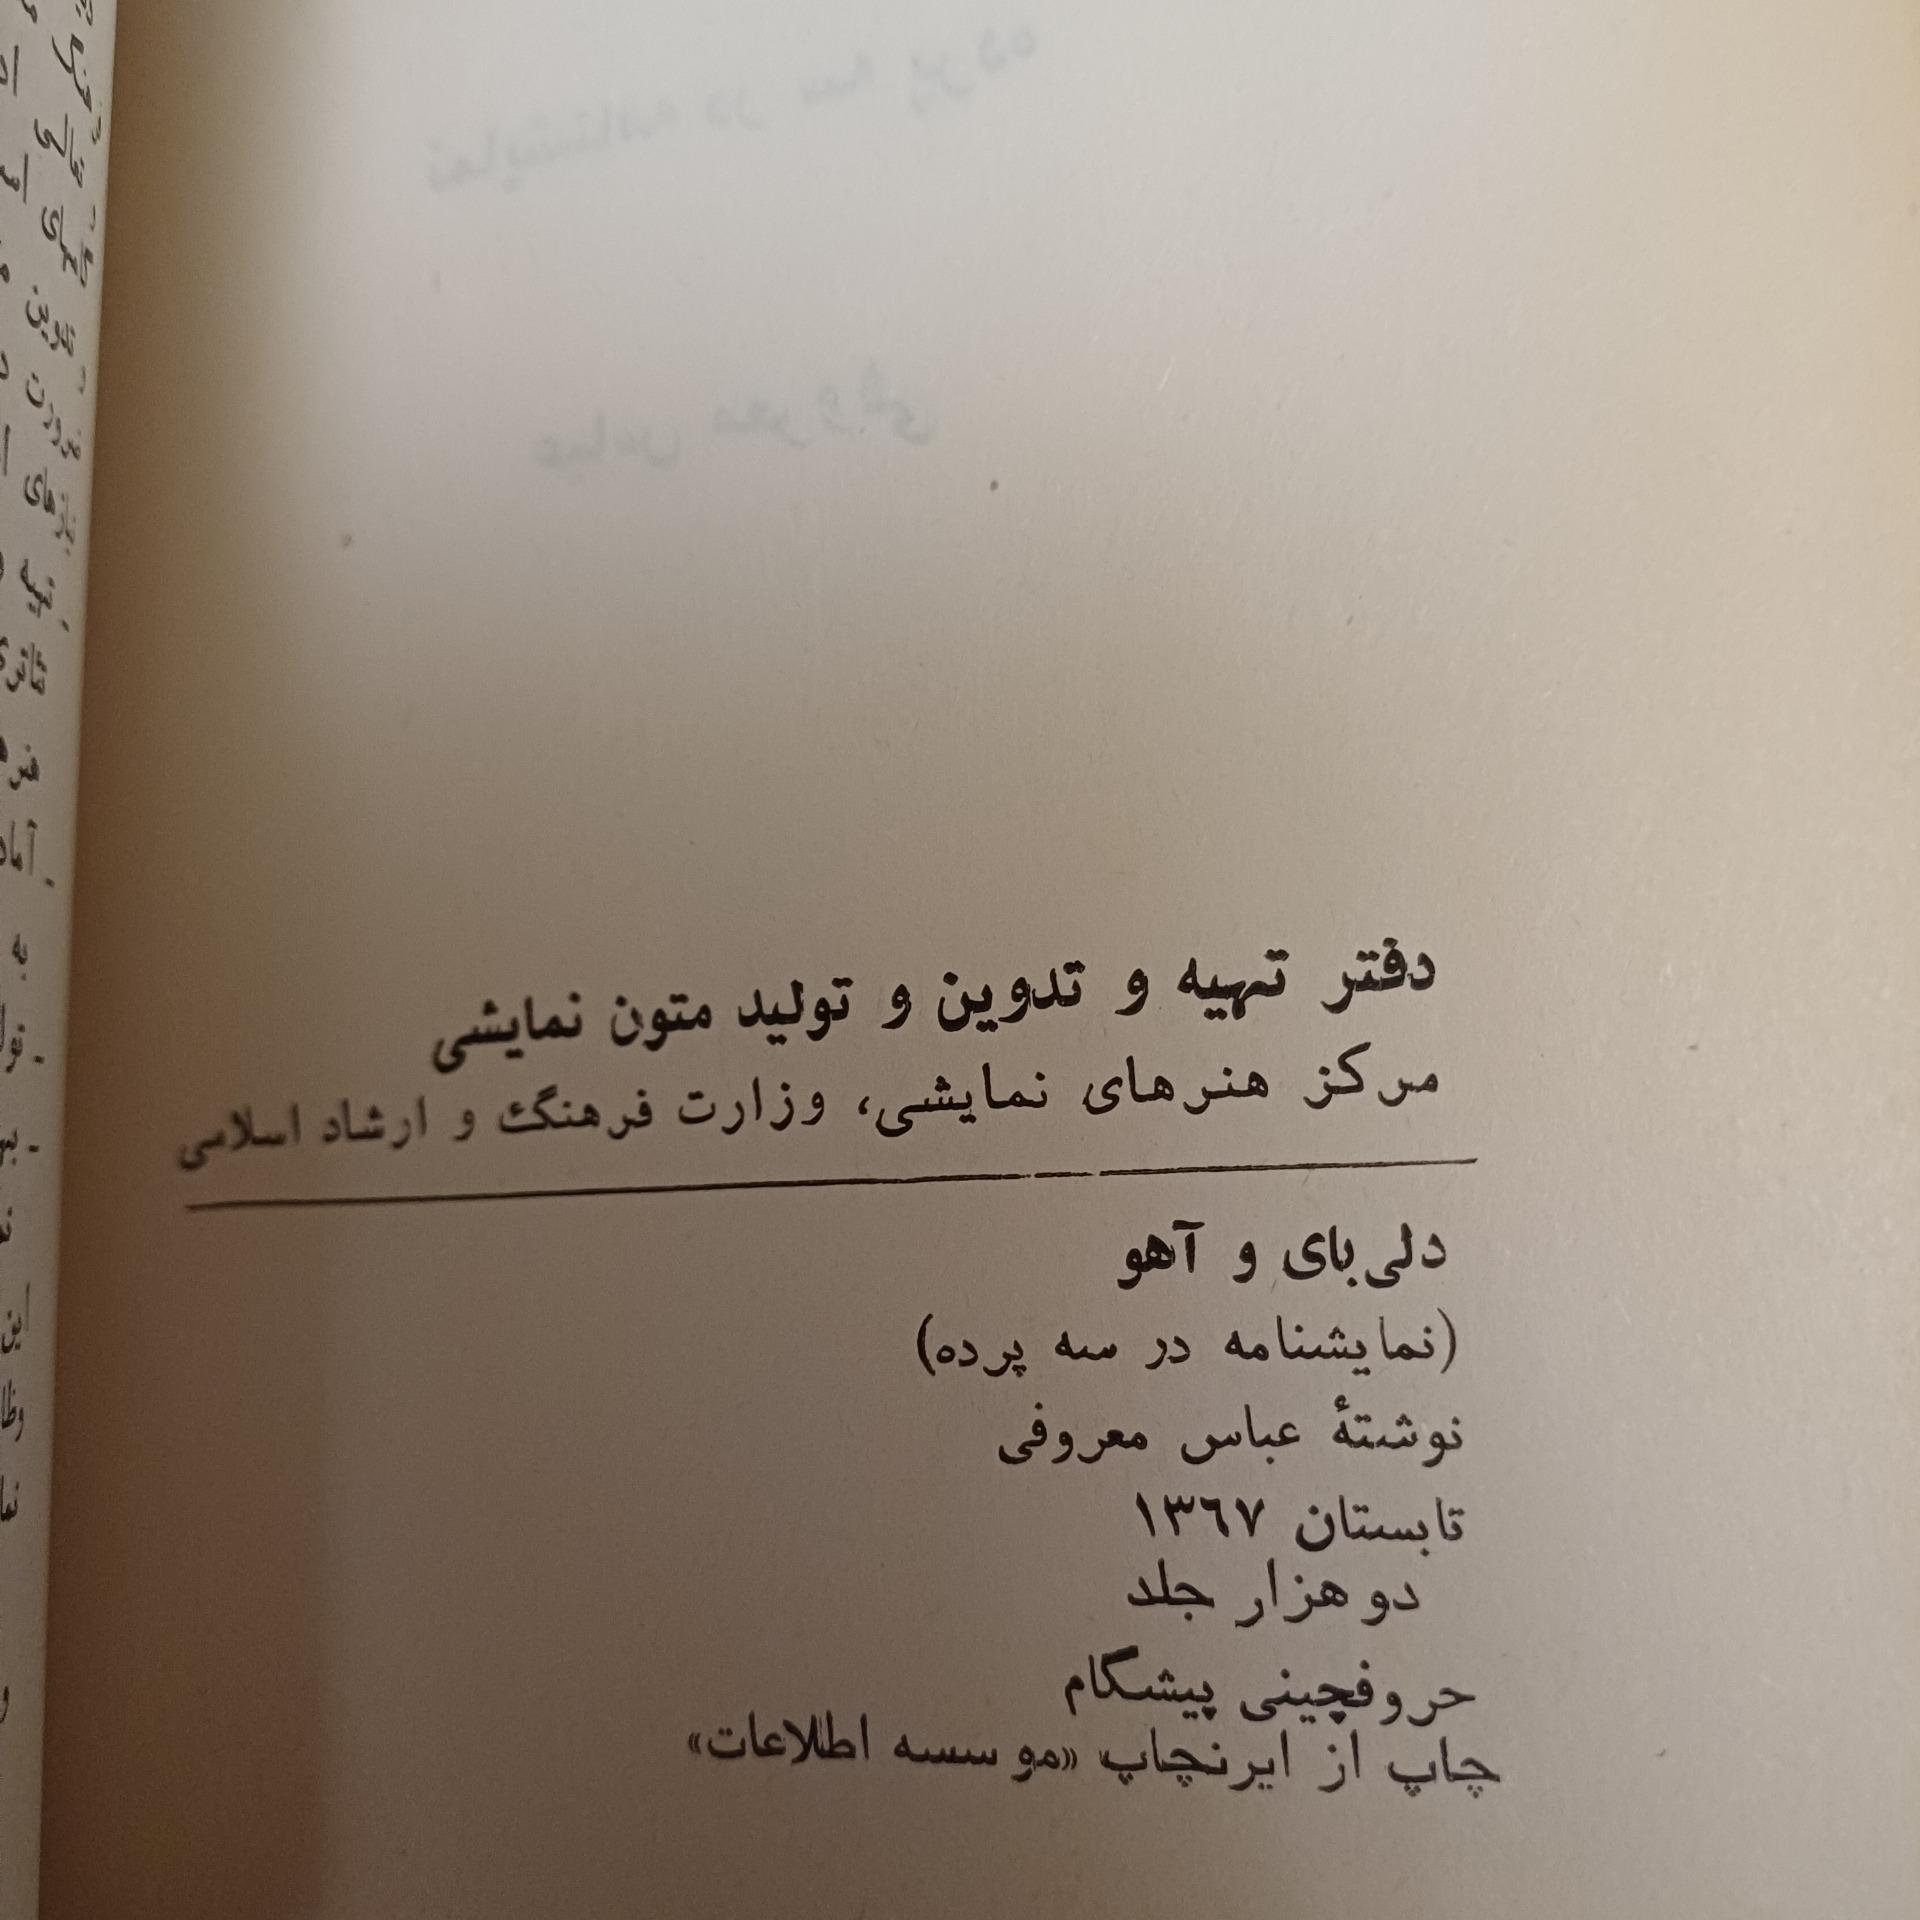 دفتر تهیه و تدوین و تولید متون نمایشی
مرکز هنرهای نمایشی، وزارت فرهنگ و ارشاد اسلامی
دلی‌بای و آهو
(نمایشنامه در سه پرده)
نوشتهٔ عباس معروفی
تابستان ۱۳۶۷
دو هزار جلد
حروفچینی پیشگام
چاپ از ایرنچاپ «موسسه اطلاعات»